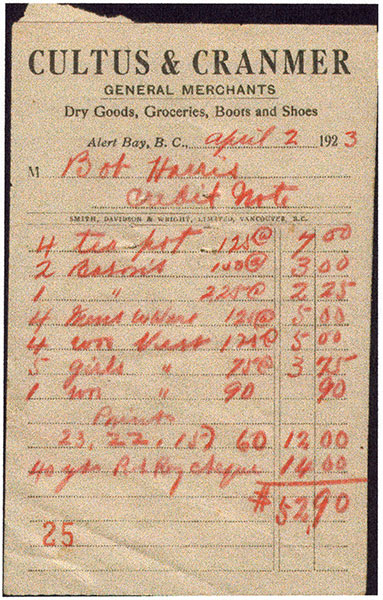 CULTUS & CRANMER
GENERAL MERCHANTS
Dry Goods, Groceries, Boots and Shoes
Alert Bay, B. C., april 2 1923
M Bob Harris
Credit Note
SMITH, DAVIDSON & WRIGHT, LIMITED, VANCOUVER, B.C.
4 tea pot 175@ 7 00
2 Basons 150@ 3 00
1 " 225@ 2 25
4 Mens 125@ 5 00
4 125@ 5 00
5 girls " 75@ 3 75
1 " 90 90
Paints
23, 22, 15) 60 12 00
40 yds 14 00
$52,90
25